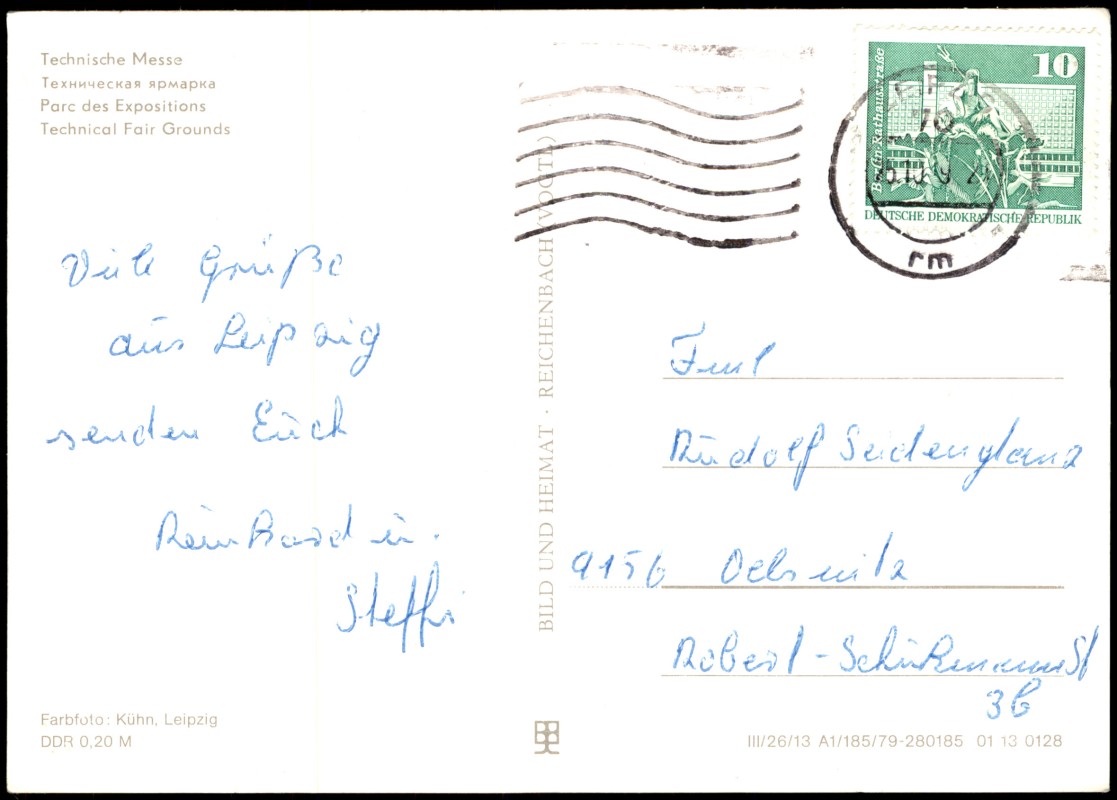 Technische Messe
Техническая ярмарка
Parc des Expositions
Technical Fair Grounds
Viele Grüße
aus Leipzig
senden Euch
Reinhard u.
Steffi
Farbfoto: Kühn, Leipzig
DDR 0,20 M
BILD UND HEIMAT · REICHENBACH (VOGTL)
10
Berlin-Rathausstraße
DEUTSCHE DEMOKRATISCHE REPUBLIK
rm
Rudolf Seidenglanz
9156 Oelsnitz
Robert-SchuhmannSt
3b
III/26/13 A1/185/79-280185 01 13 0128